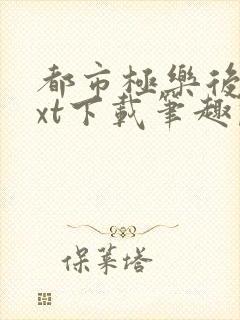 都市極樂後
xt下載筆趣
保萊塔